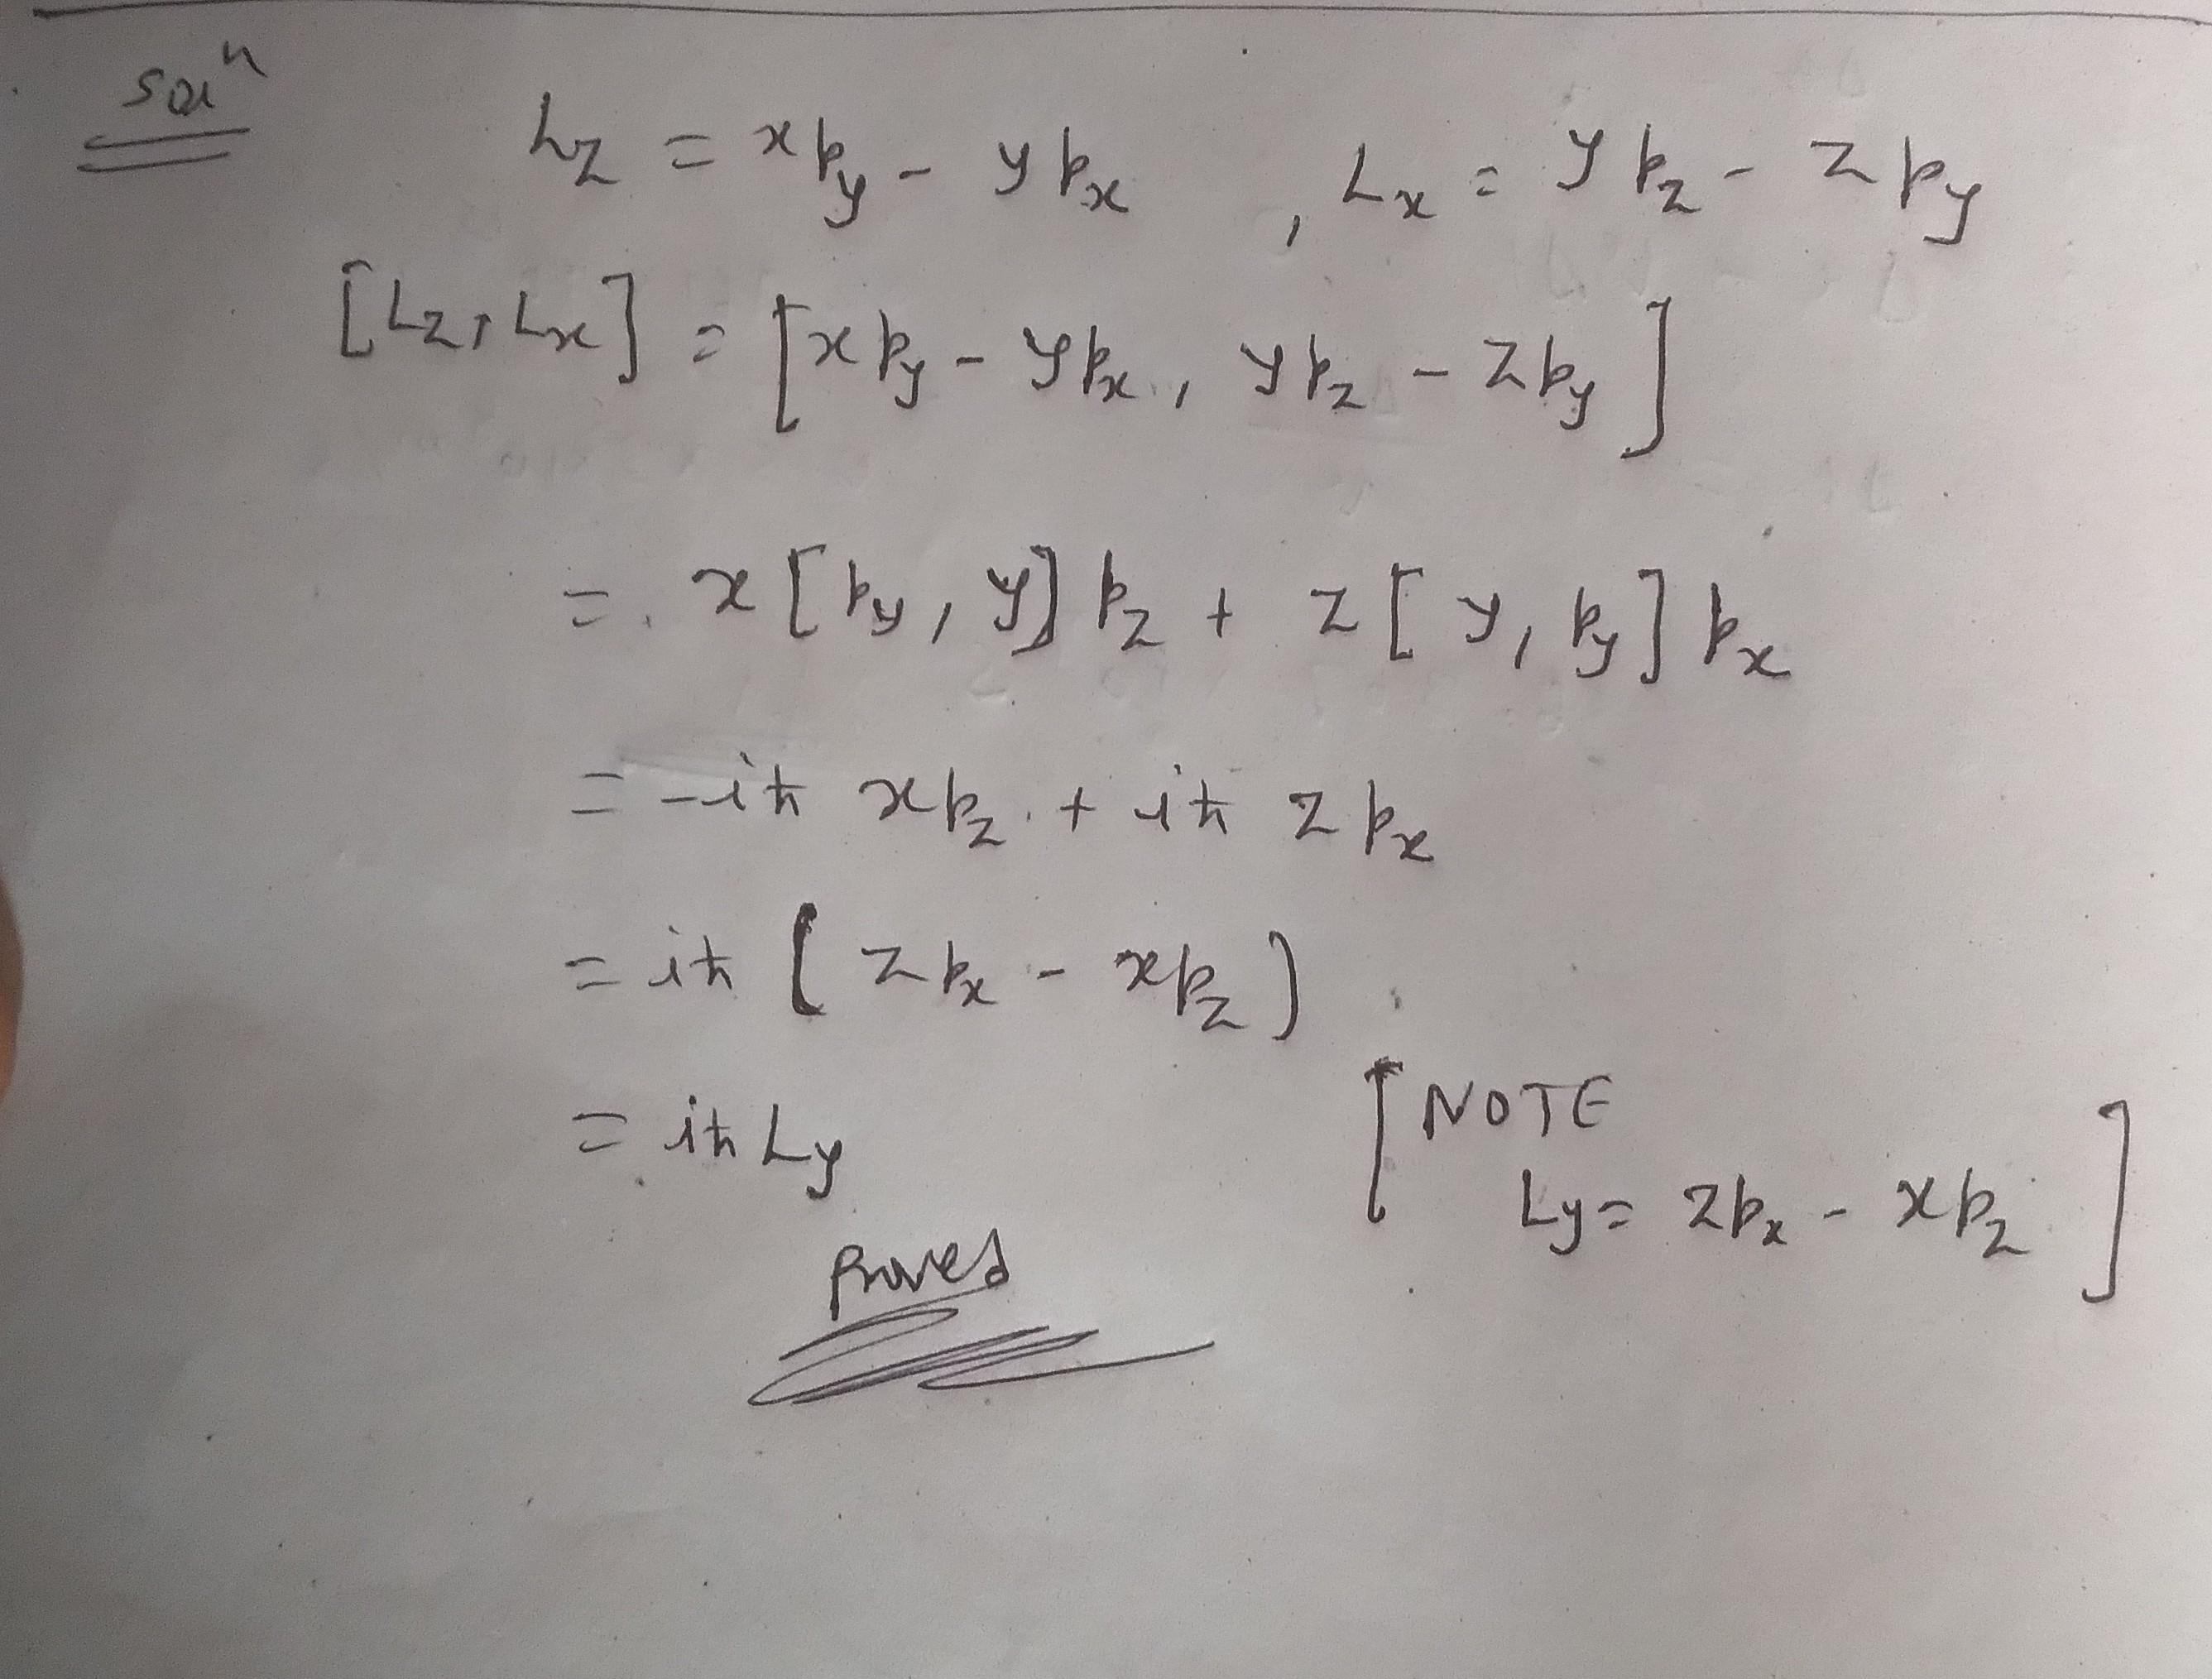 Solⁿ
L_z = x p_y - y p_x , L_x = y p_z - z p_y
[L_z, L_x] = [x p_y - y p_x, y p_z - z p_y]
= x [p_y, y] p_z + z [y, p_y] p_x
= -iħ x p_z + iħ z p_x
= iħ (z p_x - x p_z)
= iħ L_y
[NOTE
L_y = z p_x - x p_z]
Proved